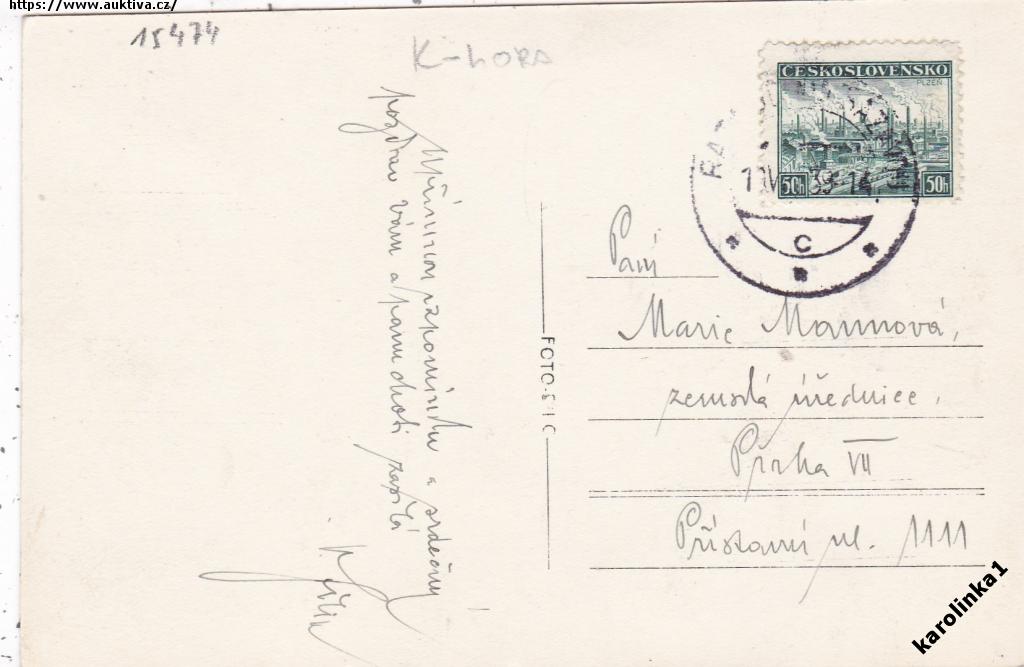 https://www.auktiva.cz/
15474
K-HORA
ČESKOSLOVENSKO
PLZEŇ
50h 50h
39-14
C
vzpomínku a srdečný
pozdrav Vám a panu choti zasílá
FOTO-
Paní
Marie Mannová,
zemská úřednice,
Praha VII
Přístavní ul. 1111
karolinka1